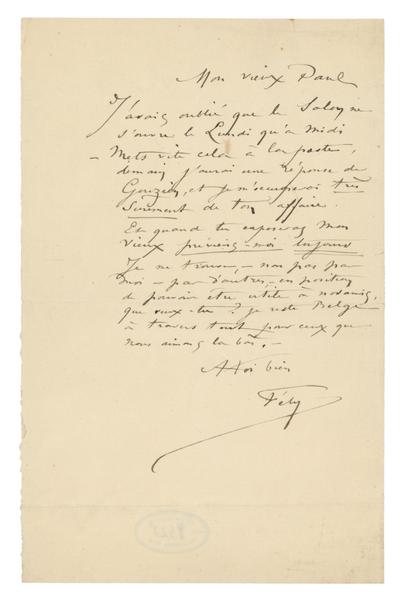 Mon vieux Paul
J'avais oublié que le Salon ne
s'ouvre le Lundi qu'à midi
– Mets vite cela à la poste,
demain j'aurai une réponse de
Gouzien, et je m'occuperai très
Surement de ton affaire.
Et quand tu exposeras Mon
Vieux préviens-moi toujours
Je me trouve, – non pas par
moi – par d'autres, – en position
de pouvoir etre utile à nos amis,
que veux-tu ? Je reste Belge
à travers tout pour ceux que
nous aimons là bas. –
A toi bien
Fély